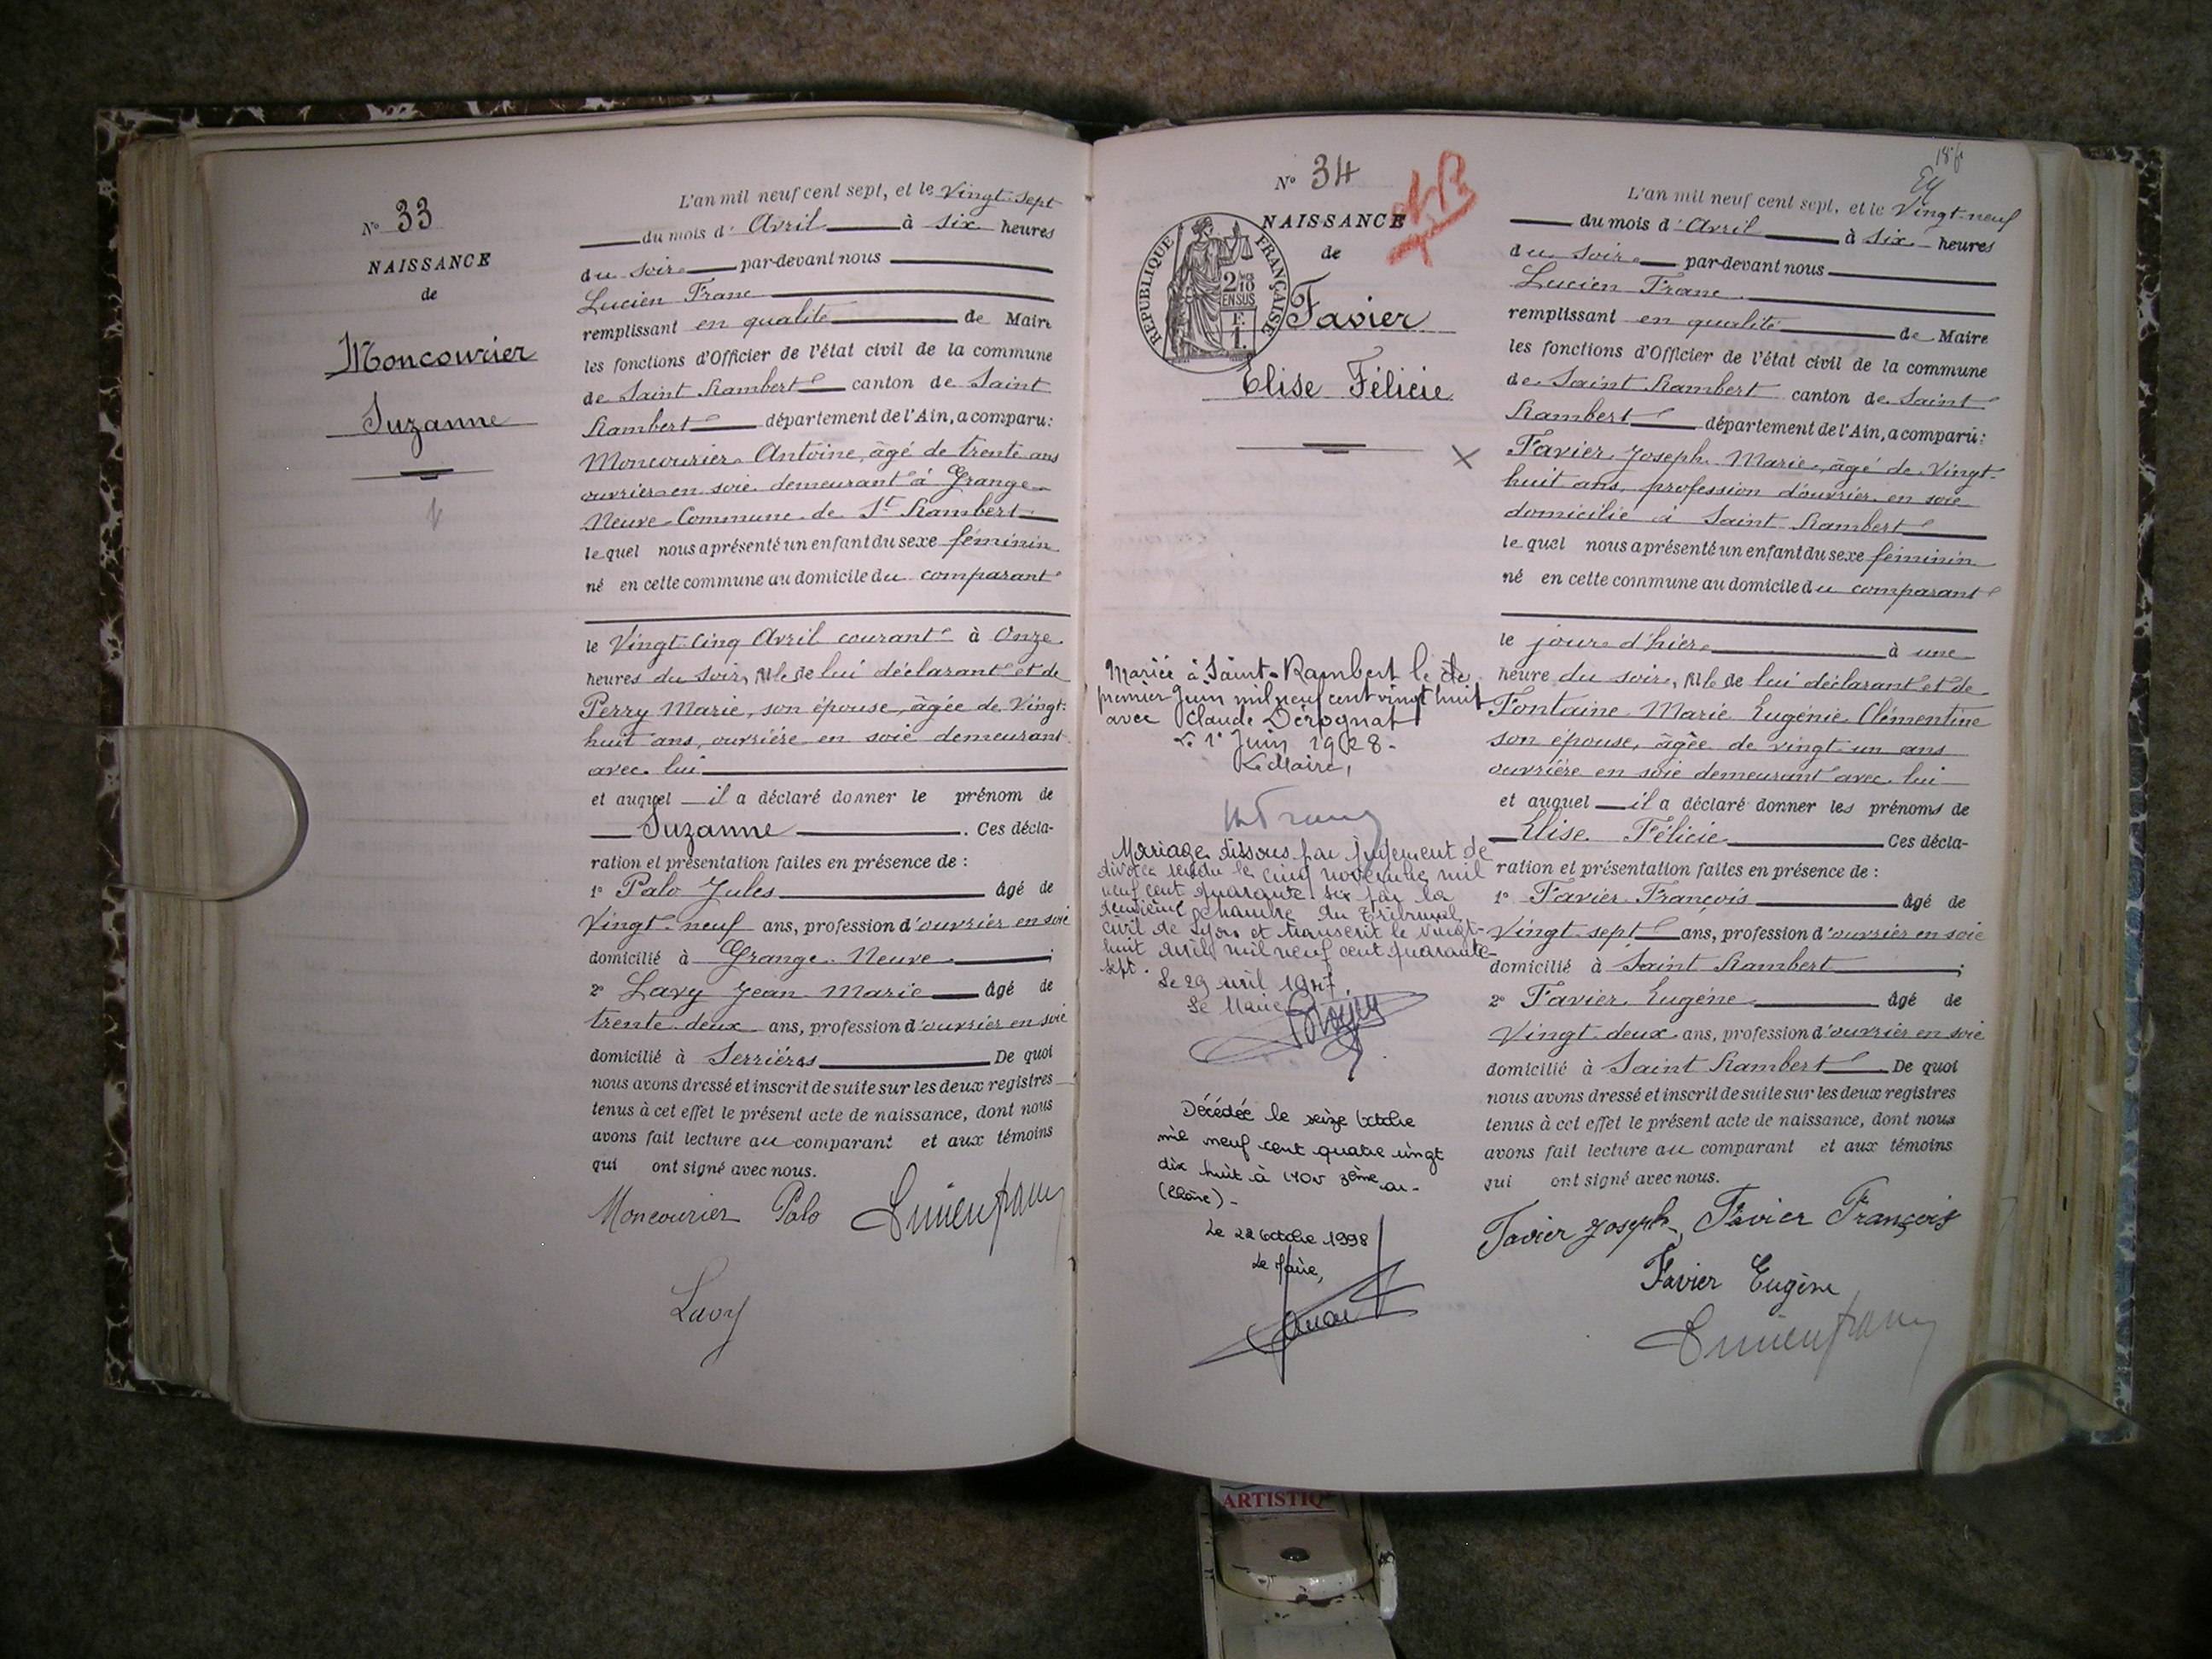 N° 33
NAISSANCE
de
Moncourier
Suzanne
L'an mil neuf cent sept, et le Vingt-sept
du mois d' Avril à six heures
du soir par-devant nous
Lucien Franc
remplissant en qualité de Maire
les fonctions d'Officier de l'état civil de la commune
de Saint Rambert canton de Saint
Rambert département de l'Ain, a comparu:
Moncourier Antoine, âgé de trente ans
ouvrier en soie demeurant à Grange
Neuve Commune de St Rambert
lequel nous a présenté un enfant du sexe féminin
né en cette commune au domicile du comparant
le Vingt Cinq Avril courant à Onze
heures du soir, fille de lui déclarant et de
Perry Marie, son épouse, âgée de Vingt
huit ans, ouvrière en soie demeurant
avec lui
et auquel il a déclaré donner le prénom de
Suzanne. Ces décla-
ration et présentation faites en présence de :
1° Palo Jules âgé de
Vingt-neuf ans, profession d'ouvrier en soie
domicilié à Grange Neuve ;
2° Lavy Jean Marie âgé de
trente deux ans, profession d'ouvrier en soie
domicilié à Serrières De quoi
nous avons dressé et inscrit de suite sur les deux registres
tenus à cet effet le présent acte de naissance, dont nous
avons fait lecture au comparant et aux témoins
qui ont signé avec nous.
Moncourier Palo Lucien Franc
Lavy
N° 34
NAISSANCE
de
REPUBLIQUE FRANÇAISE
2/10
EN SUS
Favier
Elise Félicie
Mariée à Saint-Rambert le
premier Juin mil neuf cent vingt huit
avec Claude Dérognat
Le 1er Juin 1928.
Le Maire,
Mariage dissous par jugement de
divorce rendu le cinq novembre mil
neuf cent quarante six par la
deuxième chambre du Tribunal
civil de Lyon et transcrit le vingt-
huit avril mil neuf cent quarante-
sept.
Le 29 avril 1947.
Le Maire
Décédée le seize Octobre
mil neuf cent quatre vingt
dix huit à LYON 3ème ar-
(Rhône)-
Le 22 Octobre 1998
Le Maire,
L'an mil neuf cent sept, et le Vingt-neuf
du mois d' Avril à six heures
du soir par-devant nous
Lucien Franc
remplissant en qualité de Maire
les fonctions d'Officier de l'état civil de la commune
de Saint Rambert canton de Saint
Rambert département de l'Ain, a comparu:
Favier Joseph Marie, âgé de Vingt-
huit ans, profession d'ouvrier en soie
domicilié à Saint Rambert
lequel nous a présenté un enfant du sexe féminin
né en cette commune au domicile du comparant
le jour d'hier à une
heure du soir, fille de lui déclarant et de
Fontaine Marie Eugénie Clémentine
son épouse, âgée de vingt-un ans
ouvrière en soie demeurant avec lui
et auquel il a déclaré donner les prénoms de
Elise Félicie Ces décla-
ration et présentation faites en présence de :
1° Favier François âgé de
Vingt sept ans, profession d'ouvrier en soie
domicilié à Saint Rambert ;
2° Favier Eugène âgé de
Vingt deux ans, profession d'ouvrier en soie
domicilié à Saint Rambert De quoi
nous avons dressé et inscrit de suite sur les deux registres
tenus à cet effet le présent acte de naissance, dont nous
avons fait lecture au comparant et aux témoins
qui ont signé avec nous.
Favier Joseph Favier François
Favier Eugène
Lucien Franc
ARTISTIQ